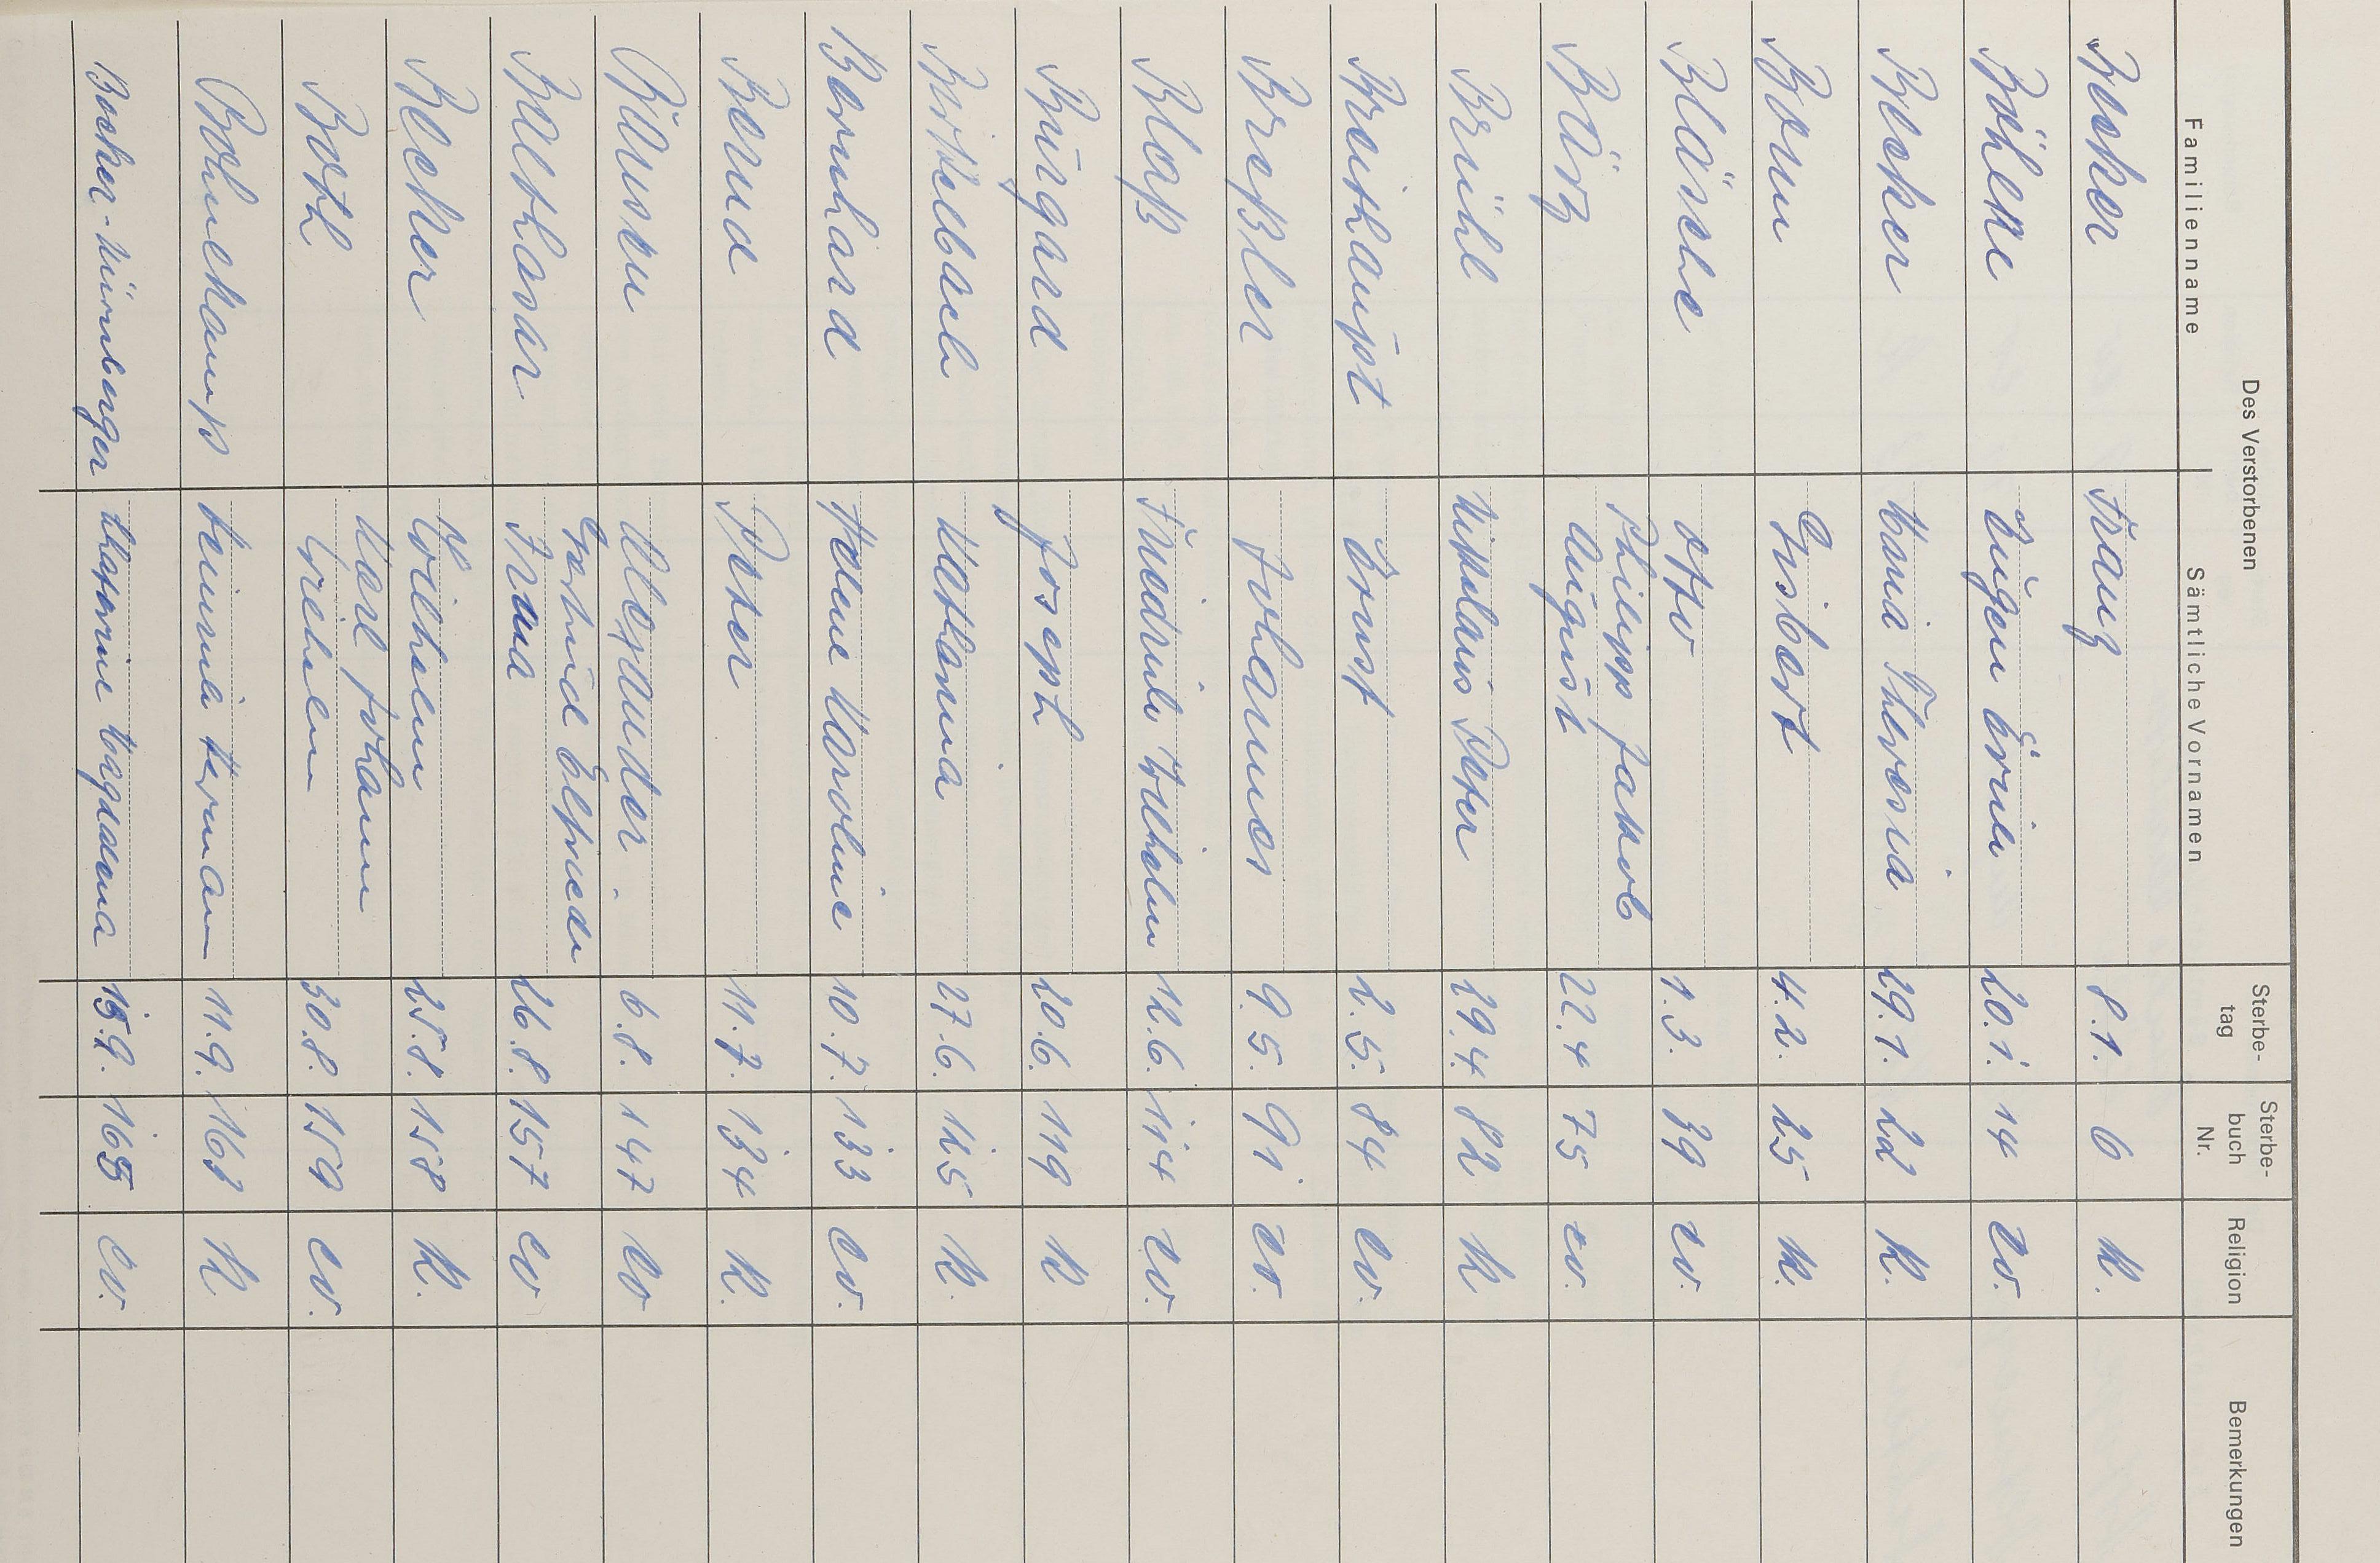 Des Verstorbenen
Familienname Sämtliche Vornamen Sterbe-tag Sterbe-buch Nr. Religion Bemerkungen
Becker Franz 8.1. 6 k.
Böhlke 20.1. 14 ev.
Becker Maria Theresia 29.1. 22 k.
Born Gisbert 4.2. 25 k.
Bläsche Otto 1.3. 39 ev.
Bärz Philipp Jakob
August 22.4 75 ev.
Brühl Nikolaus Peter 29.4. 82 k
Breithaupt Ernst 2.5. 84 ev.
Breßler Johannes 9.5. 91 ev.
Bloß Friedrich Wilhelm 12.6. 114 ev.
Burgard Joseph 20.6. 119 k
Birkelbach Katharina 27.6. 125 k.
Bernhard Helene Karoline 10.7. 133 ev.
Bernd Peter 11.7. 134 k.
Alexander 6.8. 147 ev
Balthasar Gertrud Elfriede
Anna 26.8. 157 ev
Becker Wilhelm 25.8. 158 k.
Both Karl Johann
Wilhelm 30.8. 159 ev.
Böhnekamp Heinrich Hermann 11.9. 163 k
Becker-Nürnberger Katharine Magdalena 15.9. 165 ev.